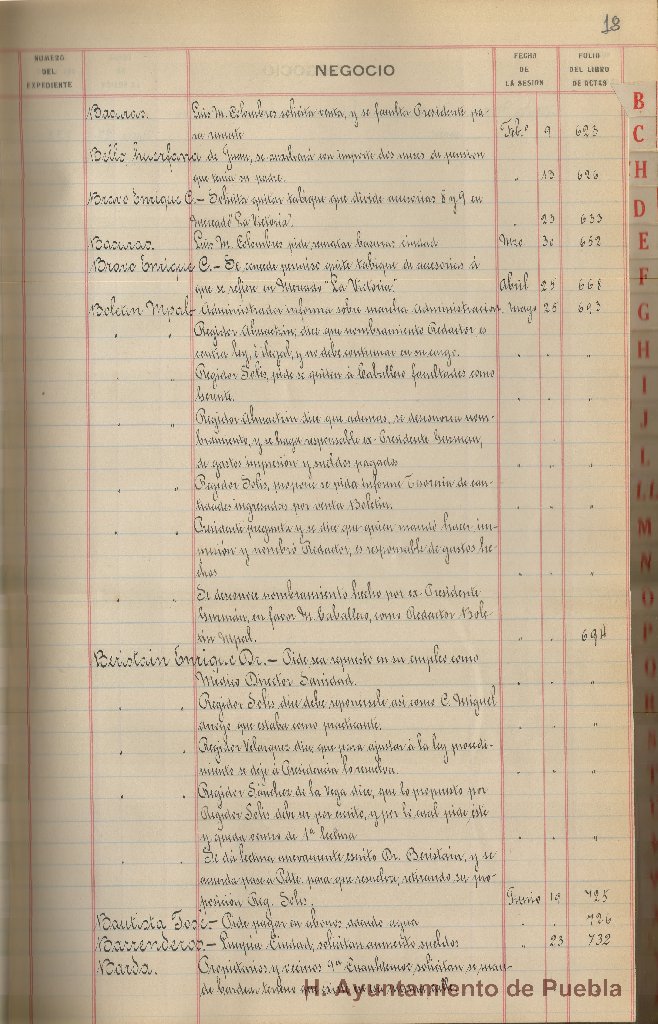 18
NUMERO DEL EXPEDIENTE
NEGOCIO
FECHA DE LA SESION
FOLIO DEL LIBRO DE ACTAS
Basuras. Luis M. Colombres solicita venta, y se faculta Presidente pa-
ra remate Feb.º 9 623
Bello huerfana de Juan, se auxiliará con importe dos meses de pension
que tenia su padre. " 13 626
Bravo Enrique C.- Solicita quitar tabique que divide accesorias 8 y 9 en
Mercado "La Victoria". " 23 633
Basuras. Luis M. Colombres pide rematar basuras ciudad Mzo 30 652
Bravo Enrique C.- Se concede permiso quite tabique de accesorias á
que se refiere en Mercado "La Victoria" Abril 25 668
Boletin Mpal- Administrador informa sobre marcha Administracion. Mayo 25 693
" " Regidor Almactzin, dice que nombramiento Redactor es
contra ley, é ilegal, y no debe continuar en su cargo. " " "
" " Regidor Solis, pide se quiten á Caballero facultades como
Gerente. " " "
" " Regidor Almactzin dice que ademas, se desconozca nom-
bramiento, y se haga responsable ex-Presidente Guzman,
de gastos impresion y sueldos pagados " " "
" " Regidor Solis, propone se pida informe Tesoreria de can-
tidades ingresadas por venta Boletin. " " "
" " Presidente pregunta y se dice que quien mandó hacer im-
presión y nombró Redactor, es responsable de gastos he-
chos " " "
" " Se desconoce nombramiento hecho por ex-Presidente
Guzmán, en favor M. Caballero, como Redactor Bole-
tin Mpal. " " 694
Beristain Enrique Dr.- Pide sea repuesto en su empleo como
Médico Director Sanidad. " " "
" " Regidor Solis dice debe reponersele asi como C. Miguel
que estaba como practicante. " " "
" " Regidor Velazquez dice, que para ajustar á la ley procedi-
miento se deje á Presidencia lo resuelva. " " "
" " Regidor Sánchez de la Vega dice, que lo propuesto por
Regidor Solis debe ser por escrito, y por lo cual pide éste
y queda como de 1ª lectura " " "
" " Se dá lectura nuevamente escrito Dr. Beristain, y se
acuerda pase a Pdte. para que resuelva, retirando su pro-
posicion Reg. Solis. Junio 19 725
Bautista José- Pide pagar en abonos adeudo agua " " 726
Barrenderos.- Limpia Ciudad, solicitan aumento sueldos " 23 732
Barda. Propietarios y vecinos 9ª Cuauhtemoc solicitan se man-
de bardear terreno
H. Ayuntamiento de Puebla
B
C
H
D
E
F
G
H
I
J
L
LL
M
N
O
P
O
R